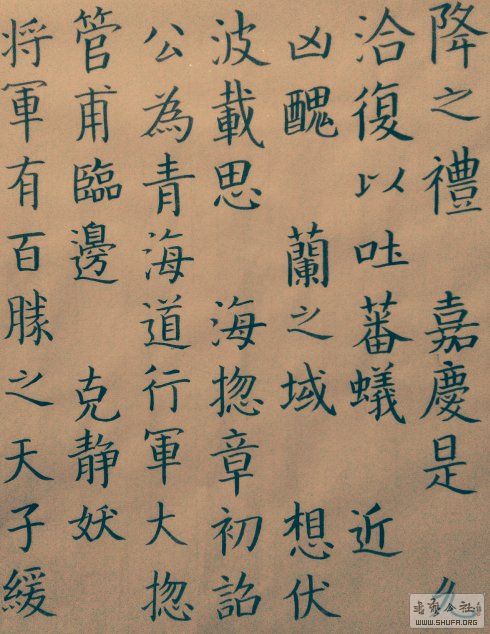 降之禮 嘉慶是
洽復以吐蕃蟻 近
凶醜 蘭之域 想伏
波載思 海揔章初詔
公為青海道行軍大揔
管甫臨邊 克静妖
将軍有百勝之天子緩
WWW.SHUFA.ORG